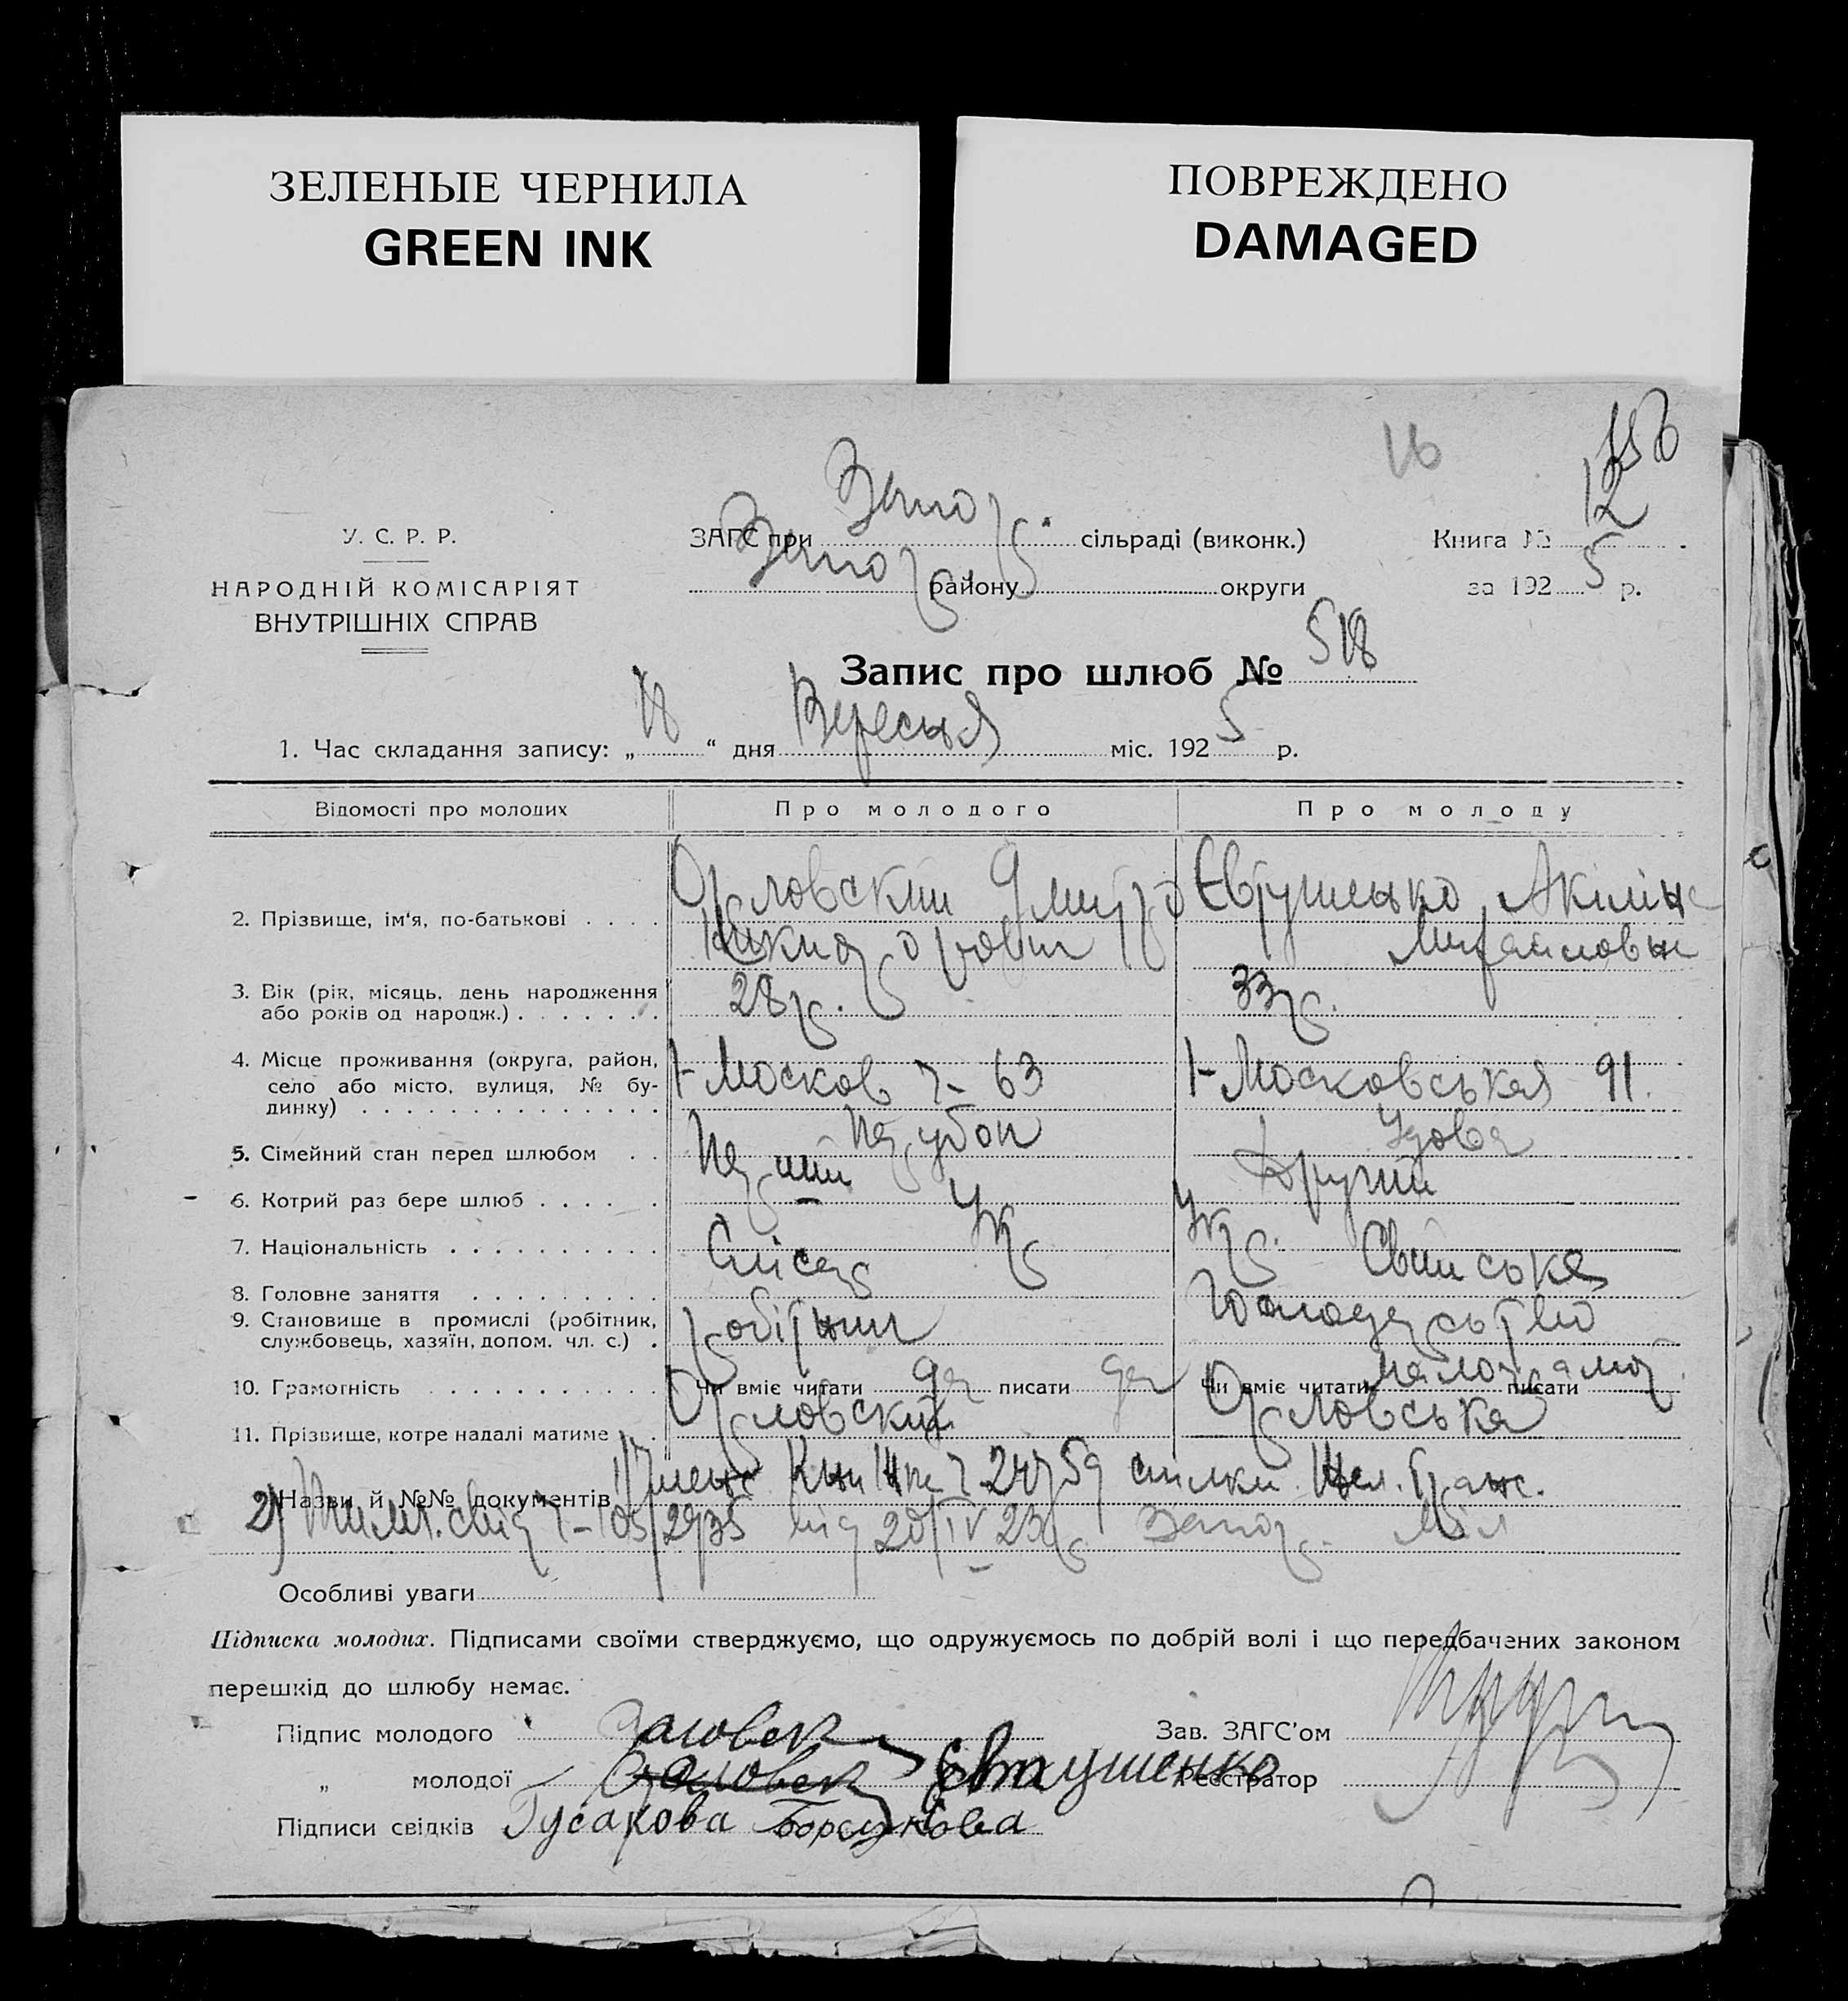 ЗЕЛЕНЫЕ ЧЕРНИЛА
GREEN INK
ПОВРЕЖДЕНО
DAMAGED
16
У. С. Р. Р.
НАРОДНІЙ КОМІСАРІЯТ
ВНУТРІШНІХ СПРАВ
ЗАГС при Запор. сільраді (виконк.)
Запор. району округи
Книга № 12
за 1925 р.
Запис про шлюб № 518
1. Час складання запису: „18“ дня Вересня міс. 1925 р.
Відомості про молодих
Про молодого
Про молоду
2. Прізвище, ім'я, по-батькові . . . .
Орловский Дмитро
Никифорович
Євтушенко Акиліна
Михайловна
3. Вік (рік, місяць, день народження
або років од народж.) . . . . . . .
28 р.
33 р.
4. Місце проживання (округа, район,
село або місто, вулиця, № бу-
динку) . . . . . . . . . . . . . .
Москов 63
Московськая 91.
5. Сімейний стан перед шлюбом . .
парубок
Удова
6. Котрий раз бере шлюб . . . . .
Перший
Другий
7. Національність . . . . . . . . .
Укр
Укр.
8. Головне заняття . . . . . . . .
Слісар
Свійське
9. Становище в промислі (робітник,
службовець, хазяїн, допом. чл. с.) .
робітник
Господарство
10. Грамотність . . . . . . . . . . .
Чи вміє читати да писати да
Чи вміє читати малограмот. писати
11. Прізвище, котре надалі матиме . .
Орловский
Орловська
Назви й №№ документів
1) Членс Книжка 24759 спілки
2) 20/IV 23 р Запор.
Особливі уваги
Підписка молодих. Підписами своїми стверджуємо, що одружуємось по добрій волі і що передбачених законом
перешкід до шлюбу немає.
Підпис молодого
Зав. ЗАГС'ом
„ молодої Євтушенко
Реєстратор
Підписи свідків Гусакова Борсукова